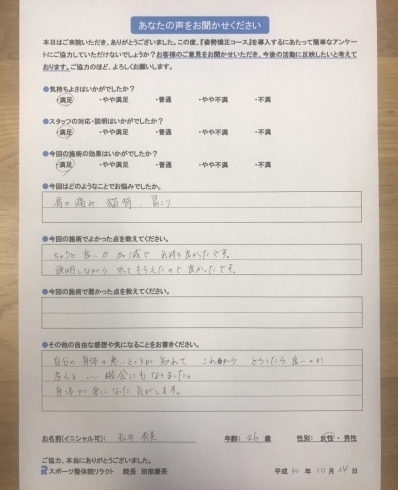 あなたの声をお聞かせください
本日はご来院いただき、ありがとうございました。この度、『姿勢矯正コース』を導入するにあたって簡単なアンケー
トにご協力していただけないでしょうか？お客様のご意見をお聞かせいただき、今後の活動に反映したいと考えて
おります。ご協力のほど、よろしくお願いします。
●気持ちよさはいかがでしたか？
・満足 ・やや満足 ・普通 ・やや不満 ・不満
●スタッフの対応・説明はいかがでしたか？
・満足 ・やや満足 ・普通 ・やや不満 ・不満
●今回の施術の効果はいかがでしたか？
・満足 ・やや満足 ・普通 ・やや不満 ・不満
●今回はどのようなことでお悩みでしたか。
肩の痛み 猫背、肩こり
●今回の施術でよかった点を教えてください。
ちょうど良い力加減で気持ち良かったです。
説明しながらやってもらえたので良かったです。
●今回の施術で悪かった点を教えてください。
●その他の自由な感想や気になることをお書きください。
自分の身体の悪いところが知れて これから どうしたら良いのか
考える いい機会にもなりました。
身体が楽になった気がします。
お名前(イニシャル可): 年齢: 46 歳 性別: 女性・男性
ご協力、本当にありがとうございました。
スポーツ整体院リラクト 院長 田部慶吾 平成 30 年 10 月 24 日